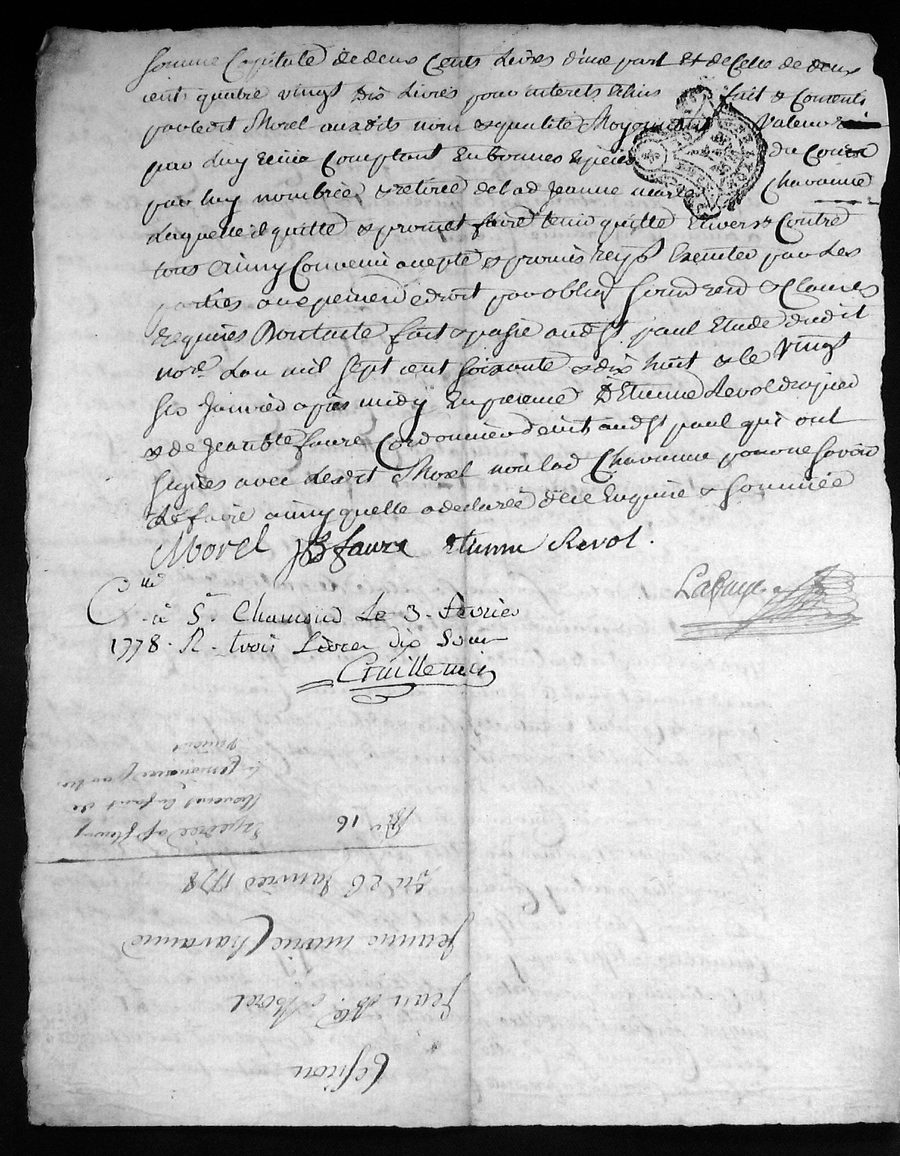 somme Capitale de deux Cents Livres d'une part Et de Celle de deux
cents quatre vingt dix Livres pour interets Echus fait & Consenti
par ledit Morel auxdits nom & qualité Moyennant Valeur
par Luy Comptant En bonnes Espèces du Cours
par luy nombrée & retirée de lad Jeanne marie Chavanne
Laquelle il quitte & promet faire tenir quitte Envers & Contre
tous ainsy Convenu accepté & promis Executer par Les
parties a peine de droit par oblig Soum rend & Clauses
requises Dont acte fait & passé aud St paul Etude dudit
nore. Lan mil sept cent soixante & dix huit & le Vingt
six Janvier après midy En présence D'Etienne Revol drapier
& de Jean bte faure Cordonnier aud St paul qui ont
signés avec Ledit Morel non lad Chavanne pour ne Savoir
Le faire ainsy quelle a declarée d'Etre Enquise & Sommée
Morel JB faure etienne Revol.
Lafaye
C. lle
à St. Chamond Le 3. fevrier
1778. R. trois Livres dix Sous
Guillemin
Cession
Jean Bte. Morel
Jeanne marie Chavanne
Du 26 Janvier 1778
16
Expédiée